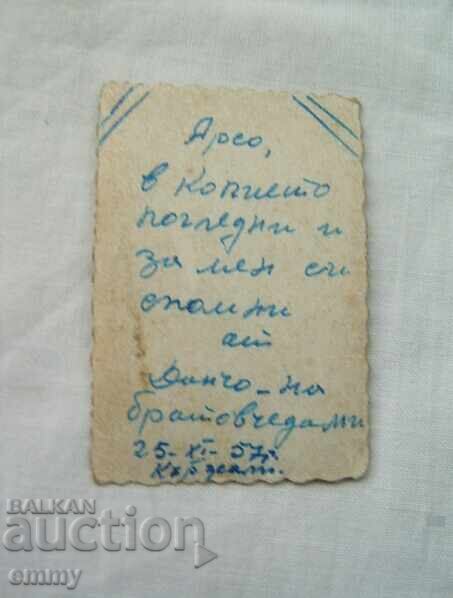 Арсо,
в копието
погледни и
за мен си
спомни
от
Данчо - на
братовчед ми
25-XI-57г.
BALKAN
auction
emmy